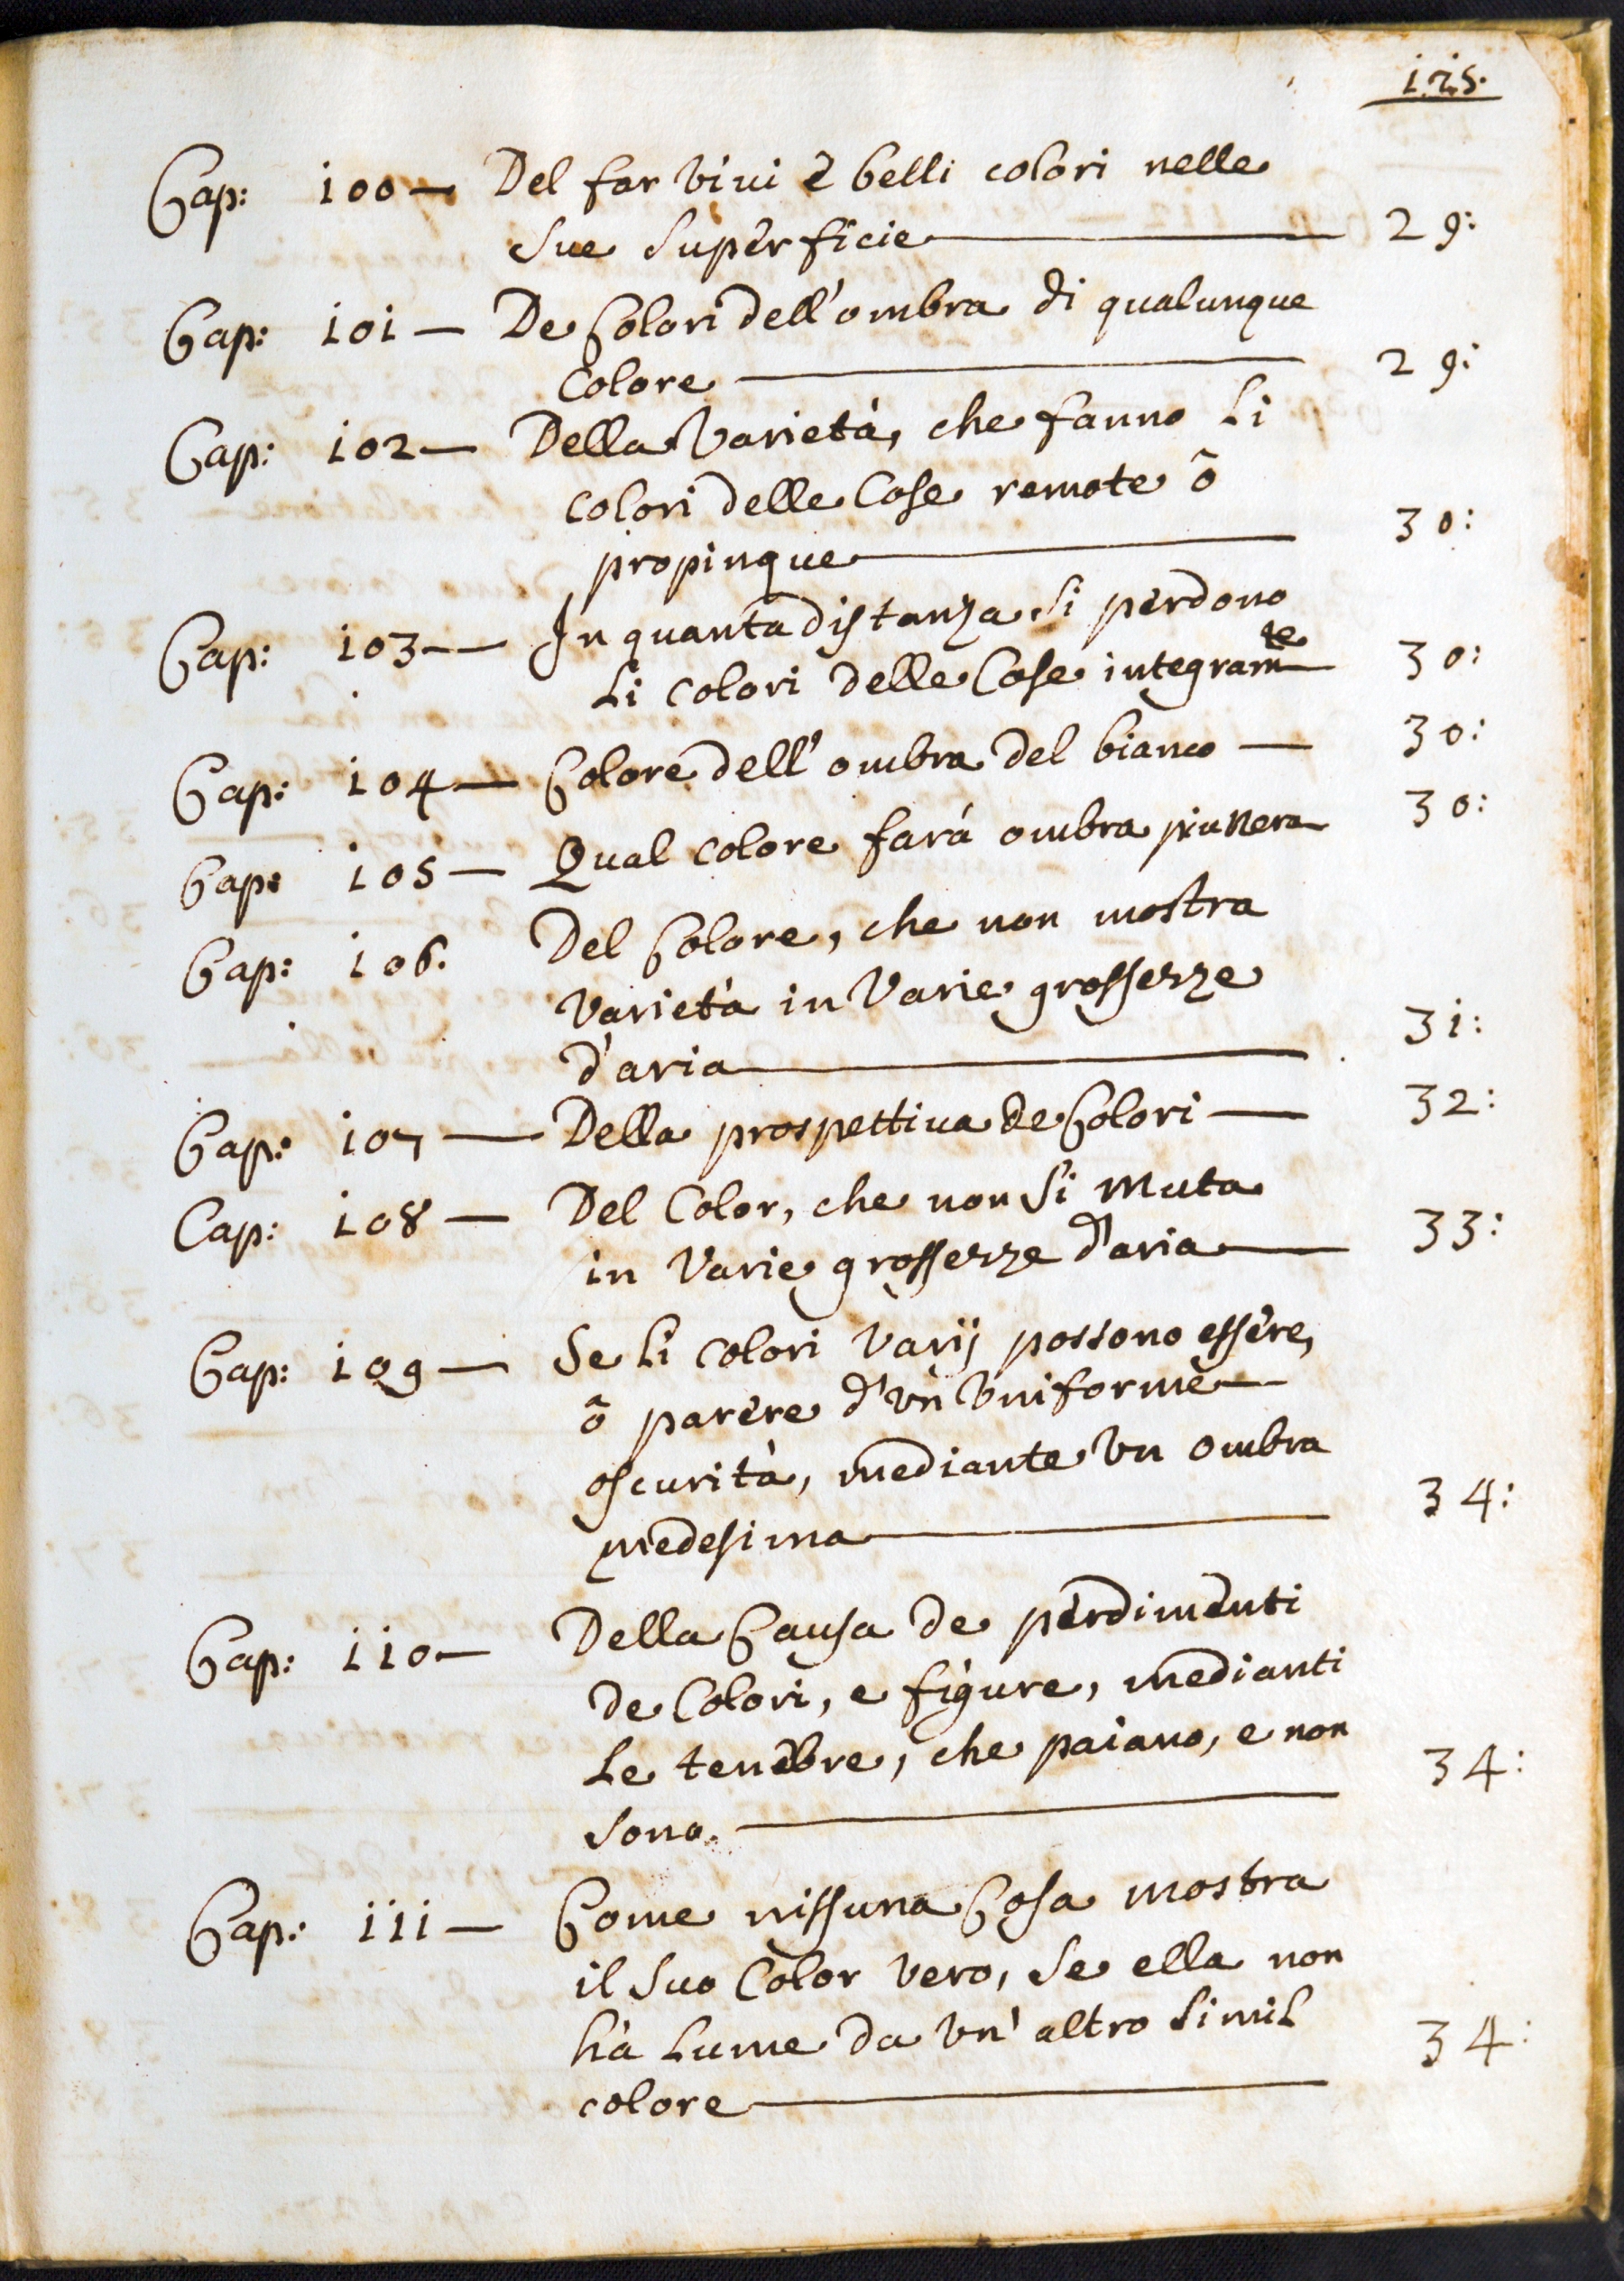 125.
Cap: 100 — Del far vivi è belli colori nelle
sue superficie — 29:
Cap: 101 — De Colori dell'ombra di qualunque
colore — 29:
Cap: 102 — Della varietà, che fanno li
colori delle cose remote ô
propinque — 30:
Cap: 103 — In quanta distanza si perdono
li colori delle cose integramte — 30:
Cap: 104 — Colore dell'ombra del bianco — 30:
Cap: 105 — Qual colore farà ombra più nera 30:
Cap: 106. Del Colore, che non mostra
varietà in varie grossezze
d'aria — 31:
Cap: 107 — Della prospettiua de Colori — 32:
Cap: 108 — Del Color, che non si muta
in varie grossezze d'aria — 33:
Cap: 109 — Se li colori varij possono essere,
ô parere d'un vniforme
oscurità, mediante vn ombra
medesima — 34:
Cap: 110 — Della Causa de perdimenti
de Colori, e figure, medianti
le tenebre, che paiano, e non
sono. — 34:
Cap: 111 — Come nissuna Cosa mostra
il suo Color vero, se ella non
hà lume da vn' altro simil
colore — 34: